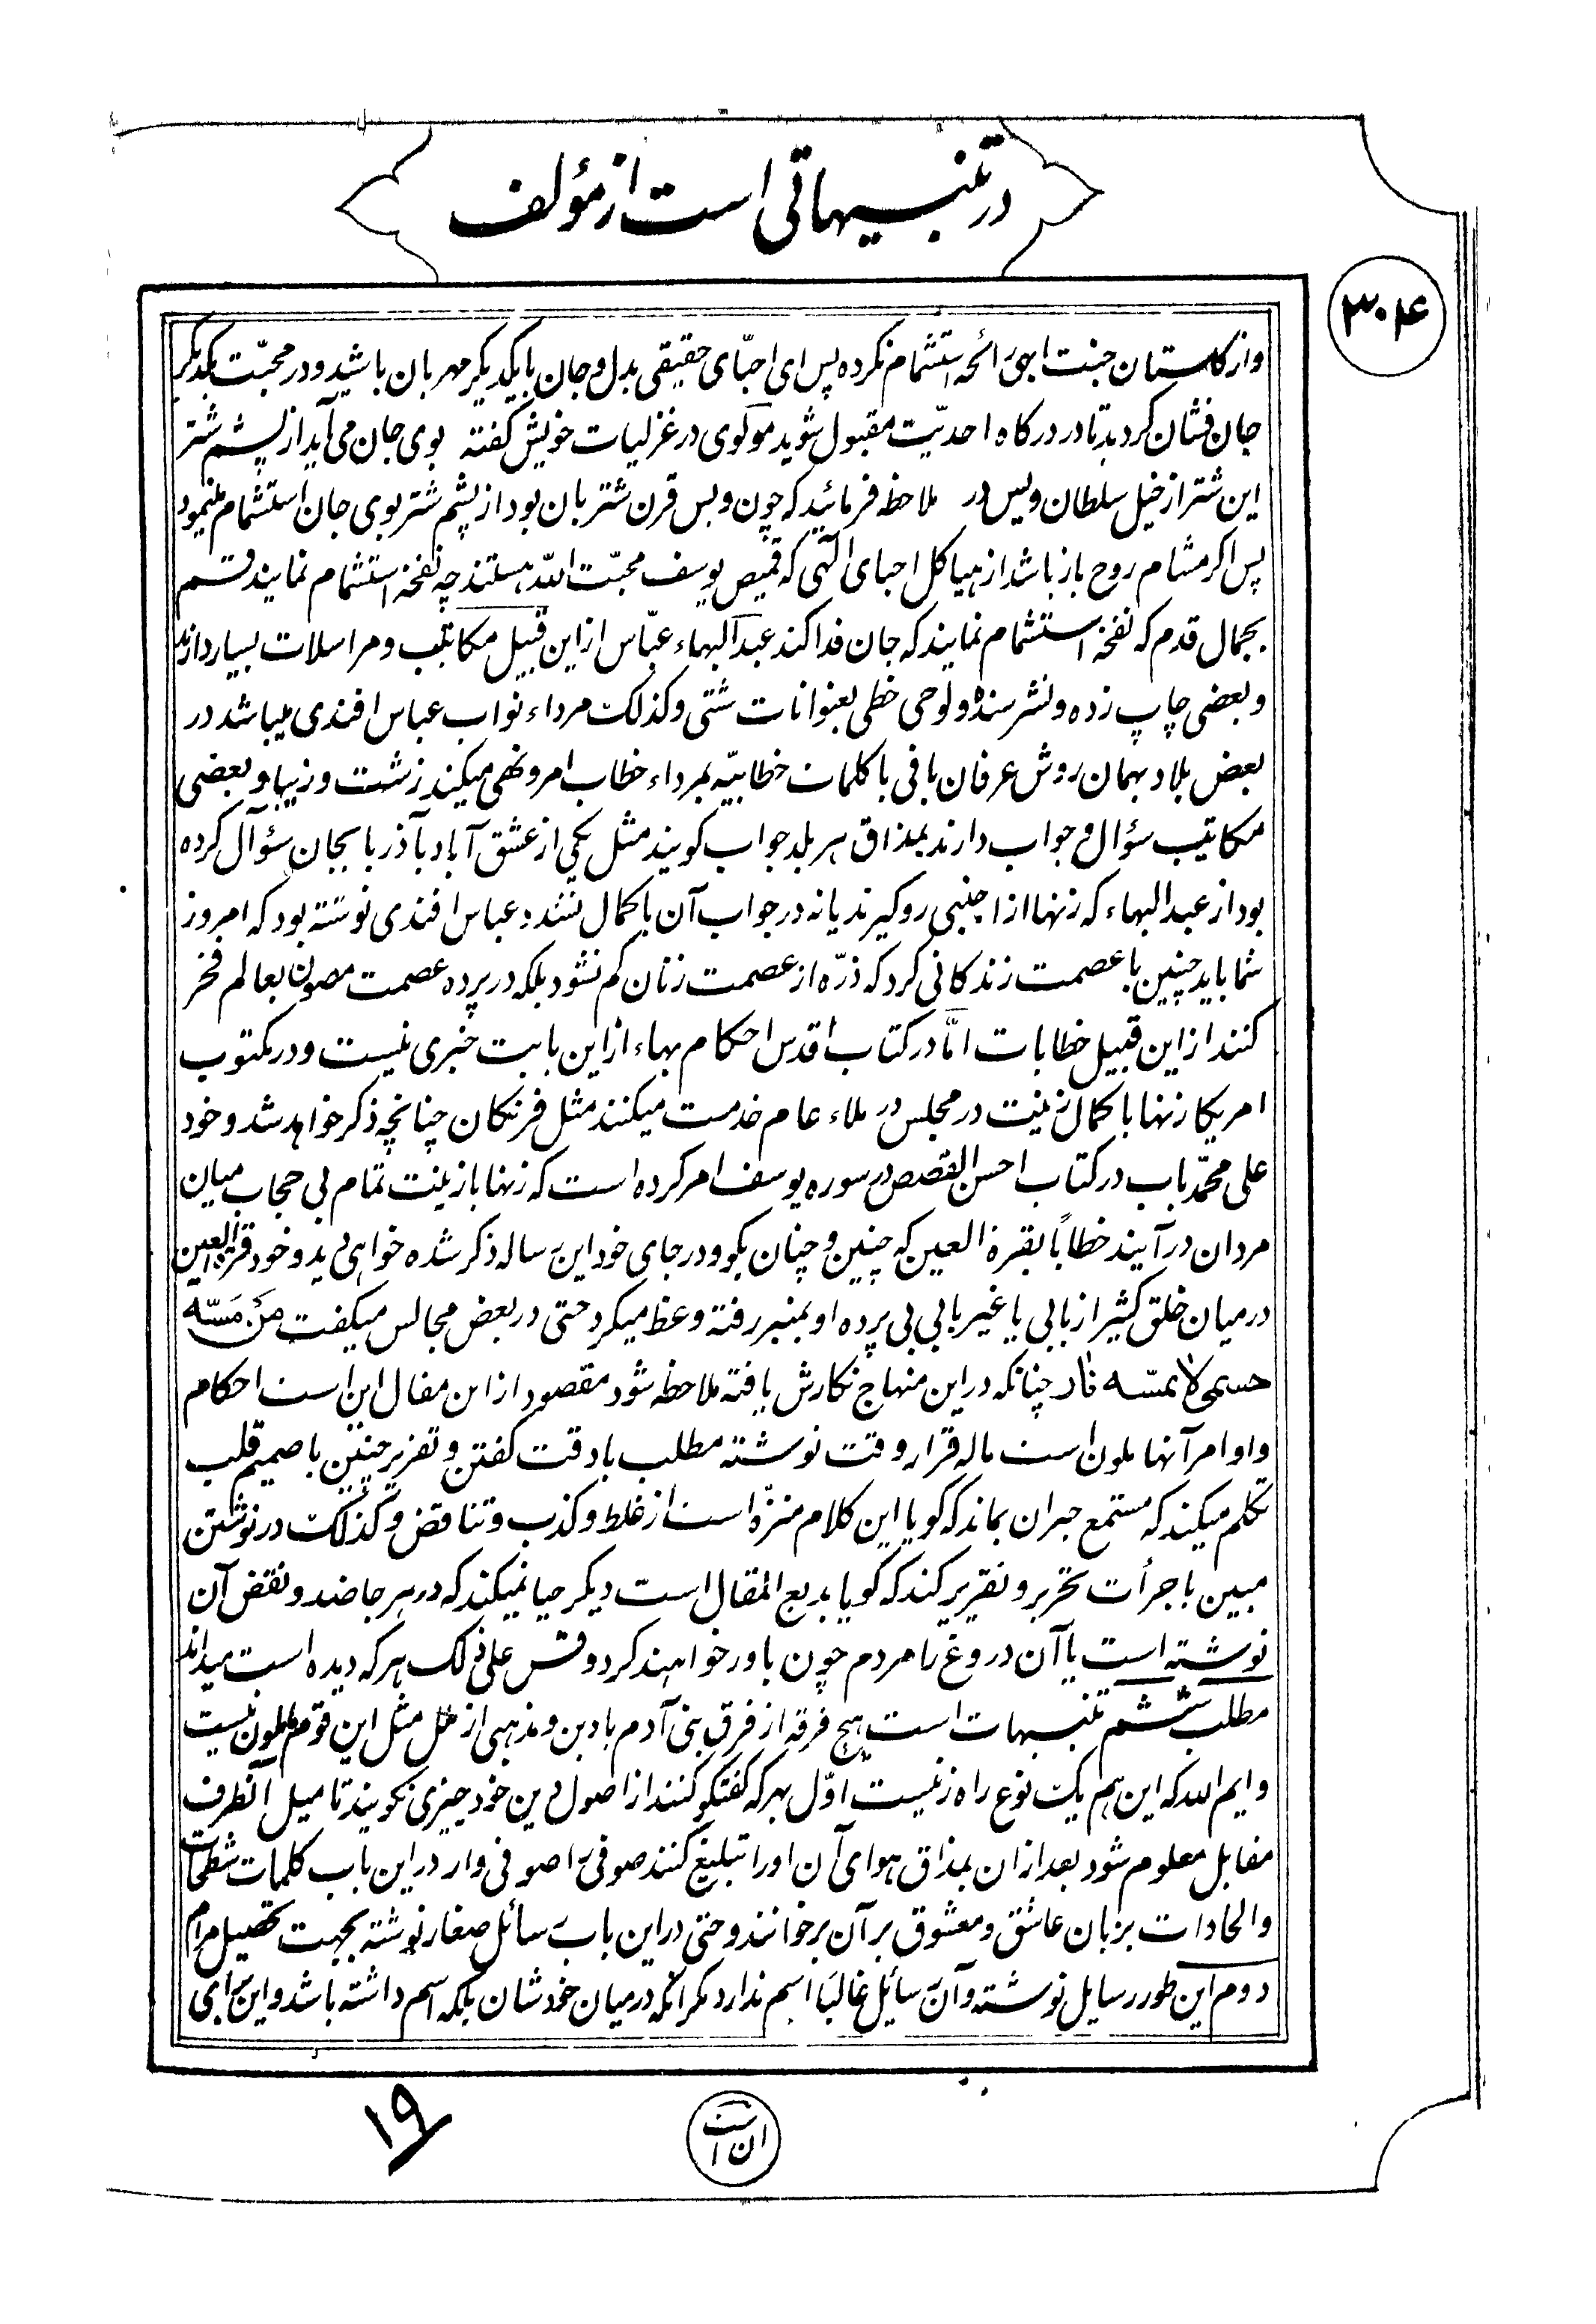 در تنبیهاتی است از مؤلف
۳۰۴
واز کلستان جنت ابهی رائحه استشمام نکرده پس ای احبّای حقیقی بدل و جان با یکدیکر مهربان باشید و در محبّت یکدیکر
جان فشان کردید تا در درکاه احدیّت مقبول شوید مولوی در غزلیات خویش کفته بوی جان می آید از پشم شتر
این شتر از خیل سلطان ویس در ملاحظه فرمائید که چون ویس قرن شتربان بود از پشم شتر بوی جان استشمام مینمود
پس اکر مشام روح باز باشد از هیاکل احبای الهی که قمیص یوسف محبّت الله هستند چه نفحه استشمام نمایند قسم
بجمال قدم که نفحه استشمام نمایند که جان فدا کند عبد البهاء عبّاس از این قبیل مکاتب و مراسلات بسیار دارند
و بعضی چاپ زده و نشر شده و لوحی خطی بعنوانات شتی و کذلک مرداء نواب عباس افندی میباشد در
بعض بلاد بهمان روش عرفان بافی با کلمات خطابیّه بمرداء خطاب امر و نهی میکند زشت و زیبا و بعضی
مکاتیب سؤال و جواب دارند بمذاق هر بلد جواب کویند مثل یکی از عشق آباد بآذربایجان سؤآل کرده
بود از عبد البهاء که زنها از اجنبی رو کیرند یا نه در جواب آن با کمال تشدد عباس افندی نوشته بود که امروز
شما باید چنین با عصمت زندکانی کرد که ذرّه از عصمت زنان کم نشود بلکه در پرده عصمت مصون بعالم فخر
کنند از این قبیل خطابات امّا در کتاب اقدس احکام بهاء از این بابت خبری نیست و در مکتوب
امریکا زنها با کمال زینت در مجلس در ملاء عام خدمت میکنند مثل فرنکان چنانچه ذکر خواهد شد و خود
علی محمّد باب در کتاب احسن القصص در سوره یوسف امر کرده است که زنها با زینت تمام بی حجاب میان
مردان در آیند خطاباً بقرة العین که چنین و چنان بکو و در جای خود این رساله ذکر شده خواهی دید و خود قرة العین
در میان خلق کثیر از بابی یا غیر بابی بی پرده او بمنبر رفته وعظ میکرد حتی در بعض مجالس میکفت مَن مَسّه
جسمی لا تمسّه نار چنانکه در این منهاج نکارش یافته ملاحظه شود مقصود از این مقال این است احکام
و اوامر آنها ملون است ماله قرار وقت نوشته مطلب با دقت کفتن و تقریر چنین با صمیم قلب
تکلم میکند که مستمع حیران بماند که کویا این کلام منزّه است از غلط و کذب و تناقض و کذلک در نوشتن
مبین با جرأت تحریر و تقریر کند که کویا بدیع المقال است دیکر حیا نمیکند که در هر جا ضد و نقض آن
نوشته است یا آن دروغ را مردم چون باور خواهند کرد و قس علی ذلک هر که دیده است میداند
مطلب ششم تنبیهات است هیچ فرقه از فرق بنی آدم با دین و مذهبی از ملل مثل این قوم ملون نیست
و ایم الله که این هم یک نوع راه زنیست اوّل بهر که کفتکو کنند از اصول دین خود چیزی نکویند تا میل آنطرف
مقابل معلوم شود بعد از ان بمذاق هوای آن او را تبلیغ کنند صوفی را صوفی وار در این باب کلمات شطحیات
و الحادات بزبان عاشق و معشوق بر آن برخوانند و حتی در این باب رسائل صغار نوشته بجهت تحصیل مرام
دوم این طور رسایل نوشته و آن رسائل غالبا اسم ندارد مکر آنکه در میان خودشان بلکه اسم داشته باشد و این برای
ان است
۱۹